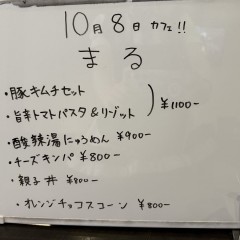 10月8日カフェ!!
まる
・豚キムチセット
・旨辛トマトパスタ&リゾット ) ¥1100-
・酸辣湯にゅうめん ¥900-
・チーズキンパ ¥800-
・親子丼 ¥800-
・オレンジチョコスコーン ¥800-